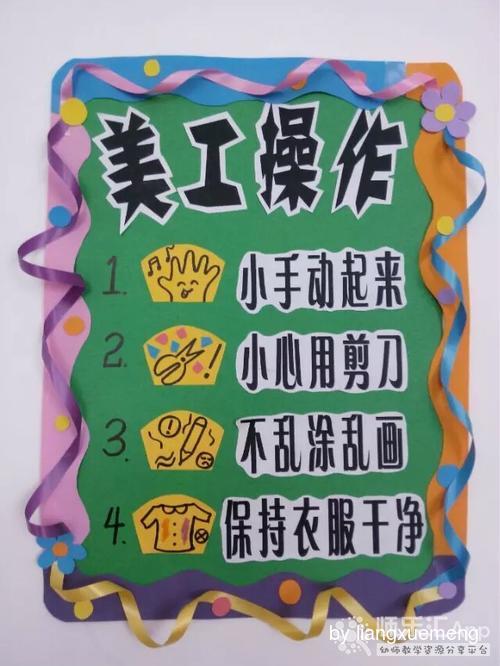 美工操作
1. 小手动起来
2. 小心用剪刀
3. 不乱涂乱画
4. 保持衣服干净
师乐汇App
by jiangxuemeng
幼师教学资源分享平台